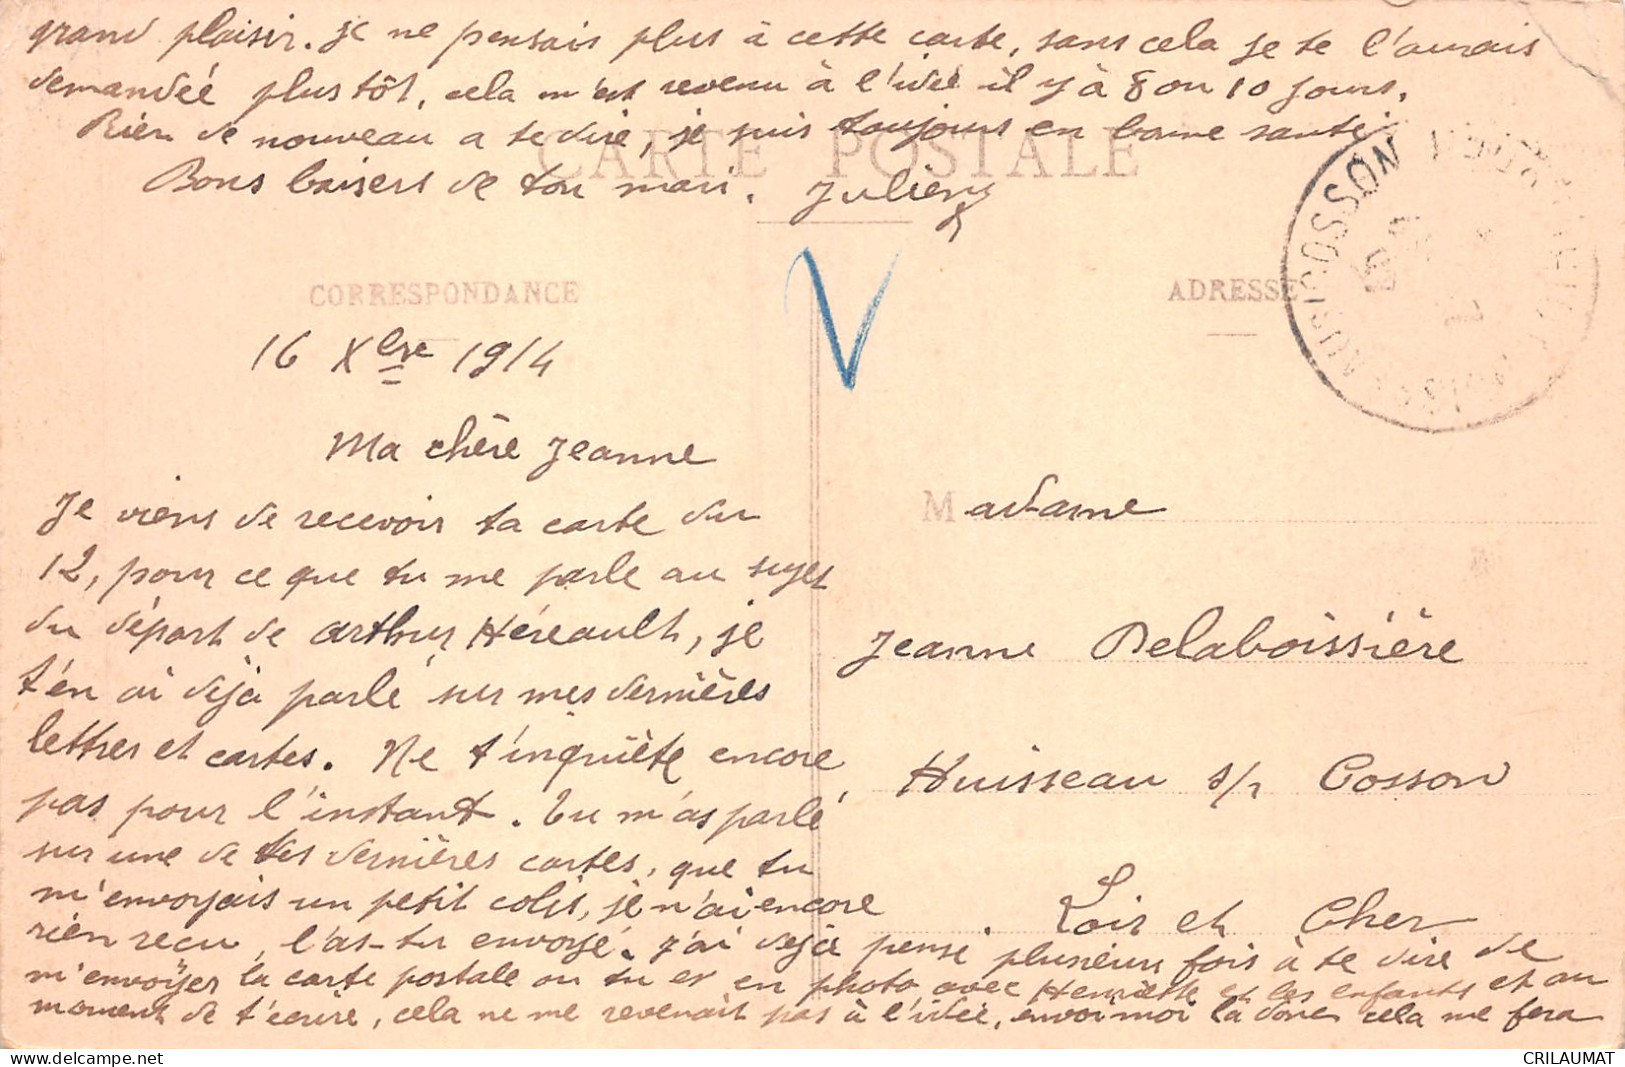 grand plaisir. je ne pensais plus à cette carte, sans cela je te l'aurais
demandéé plus tôt, cela m'est revenu à l'idée il y à 8 ou 10 jours.
Rien de nouveau a te dire, je suis toujours en bonne santé.
Bons baisers de ton mari. Julien
CARTE POSTALE
CORRESPONDANCE
ADRESSE
16 Xbre 1914
Ma chère Jeanne
Je viens de recevoir ta carte du
12, pour ce que tu me parle au sujet
du départ de Arthur Héreault, je
t'en ai déjà parlé sur mes dernières
lettres et cartes. Ne t'inquiète encore
pas pour l'instant. Tu m'as parlé
sur une de tes dernières cartes, que tu
m'envoyais un petit colis, je n'ai encore
rien reçu, l'as-tu envoyé. J'ai déjà pensé plusieurs fois à te dire de
m'envoyer la carte postale ou tu es en photo avec Henriette et les enfants et au
moment de t'écrire, cela ne me revenait pas à l'idée, envoi moi la donc cela me fera
Madame
Jeanne Delaboissière
Huisseau s/r Cosson
Loir et Cher
COSSON
CRILAUMAT